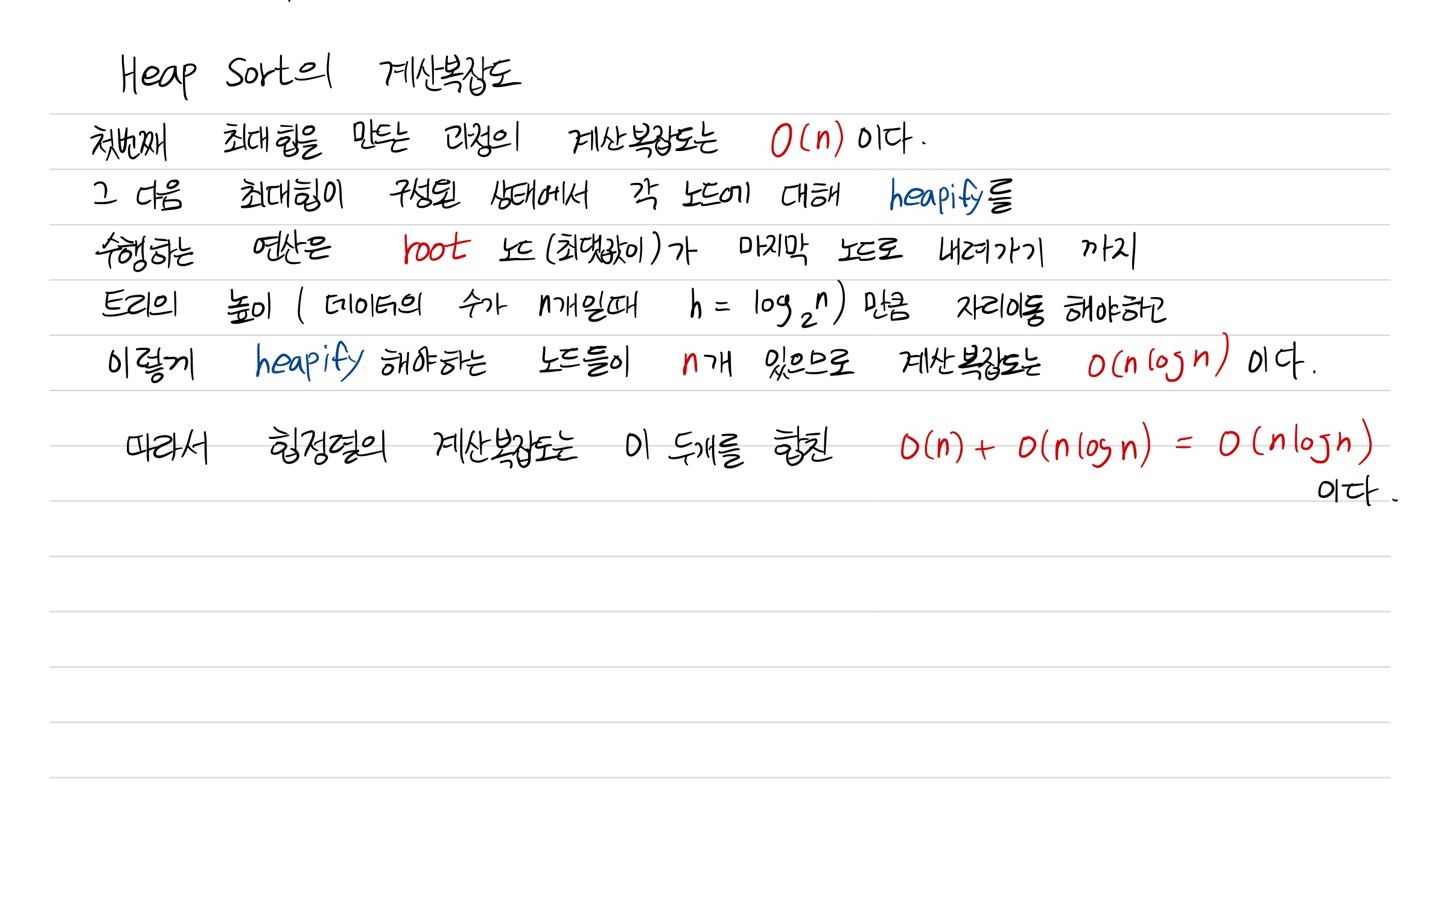 Heap Sort의 계산복잡도
첫번째 최대힙을 만드는 과정의 계산복잡도는 O(n) 이다.
그 다음 최대힙이 구성된 상태에서 각 노드에 대해 heapify를
수행하는 연산은 root 노드 (최댓값이)가 마지막 노드로 내려가기 까지
트리의 높이 ( 데이터의 수가 n개일때 h = log₂n) 만큼 자리이동 해야하고
이렇게 heapify 해야하는 노드들이 n개 있으므로 계산복잡도는 O(n log n) 이다.
따라서 힙정렬의 계산복잡도는 이 두개를 합친 O(n) + O(n log n) = O(n log n)
이다.